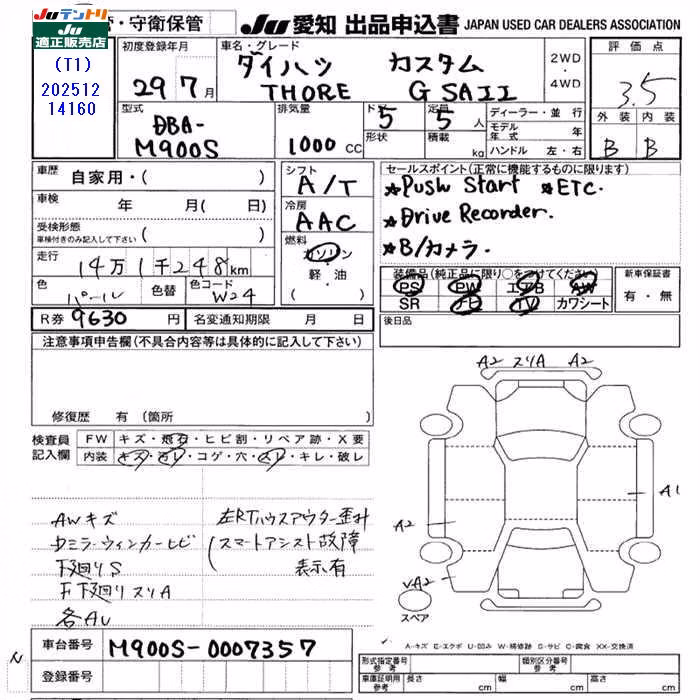 Juテントリ
Ju適正販売店
・守衛保管
Ju 愛知 出品申込書
JAPAN USED CAR DEALERS ASSOCIATION
(T1)
202512
14160
初度登録年月
29 7月
車名・グレード
ダイハツ カスタム
THORE G SAII
2WD
・
4WD
評価点
3.5
外装 内装
B B
型式
DBA-
M900S
排気量
1000 CC
ドア
5
形状
定員
5 人
積載
kg
ディーラー・並行
モデル年式 年
ハンドル 左・右
車歴
自家用・( )
車検
年 月( 日)
受検形態
車検付きのみ記入して下さい ( )
走行
14万1千248km
色
パール
色替
色コード
W24
シフト
A/T
冷房
AAC
燃料
ガソリン
・
軽・油
( )
セールスポイント(正常に機能するものに限ります)
★Push Start ★ETC.
★Drive Recorder.
★B/カメラ.
装備品(純正品に限り○をつけてください)
PS PW エアB AW
SR ナビ TV カワシート
新車保証書
有・無
R券 9630 円
名変通知期限 月 日
後日品
注意事項申告欄(不具合内容等は具体的に記入して下さい)
修復歴 有(箇所 )
検査員
記入欄
FW キズ・飛石・ヒビ割・リペア跡・X要
内装 キズ・汚レ・コゲ・穴・スレ・キレ・破レ
AWキズ
ドミラーウィンカーヒビ
下廻りS
F下廻りスリA
各AU
左RTハウスアウター歪み
スマートアシスト故障
表示有
A2 スリA A2
A1
A2
A2
スペア
A-キズ E-エクボ U-凹み W-補修跡 S-サビ C-腐食 XX-交換済
車台番号 M900S-0007357
登録番号
形式指定番号
参考
類別区分番号
参考
車庫証明用
参考
長さ cm
幅 cm
高さ cm